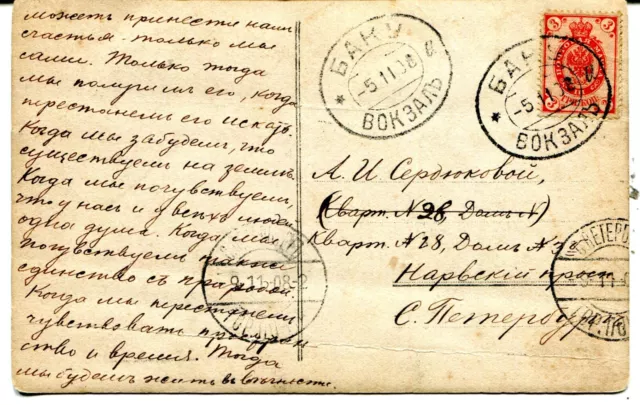 можетъ принести намъ
счастья - только мы
сами. Только тогда
мы получимъ его, когда
перестанемъ его искать.
Когда мы забудемъ, что
существуемъ на земли.
Когда мы почувствуемъ,
что у насъ и у всѣхъ людей
одна душа. Когда мы
почувствуемъ
единство съ природой.
Когда мы перестанемъ
чувствовать простран
ство и время. Тогда
мы будемъ жить въ вѣчности.
БАКУ
-5.11.08
ВОКЗАЛЪ
БАКУ
-5.11.
ВОКЗАЛЪ
3 3
А. И. Сердюковой,
(Кварт. N 28 Домъ N)
Кварт. N 28, Домъ N
Нарвскій просп
С. Петербу
9.11.08-2
С.ПЕТЕР